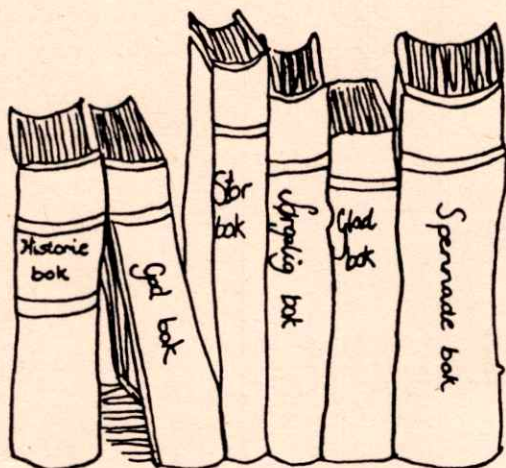 Historie
bok
God bok
Stor
bok
bok
Glad
bok
Spennade bok